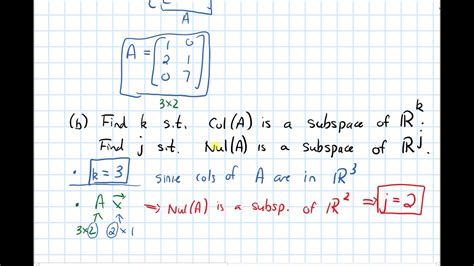 A
A = [1 0
2 1
0 7]
3x2
(b) Find k s.t. Col(A) is a subspace of ℝ^k.
Find j s.t. Nul(A) is a subspace of ℝ^j.
• k = 3 since cols of A are in ℝ^3
• A x⃗ ⇒ Nul(A) is a subsp. of ℝ^2 ⇒ j = 2
3x2 2x1